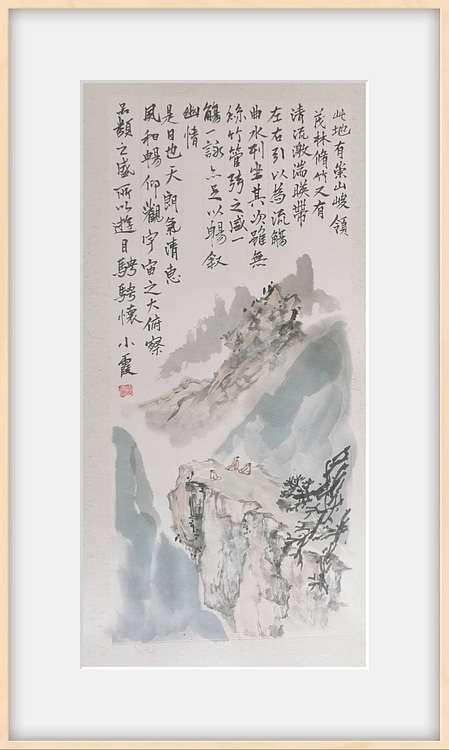 此地有崇山峻領
茂林脩竹又有
清流激湍暎帶
左右引以為流觴
曲水列坐其次雖無
絲竹管弦之盛一
觴一詠亦足以暢叙
幽情
是日也天朗氣清惠
風和暢仰觀宇宙之大俯察
品類之盛所以遊目騁騁懷 小霞